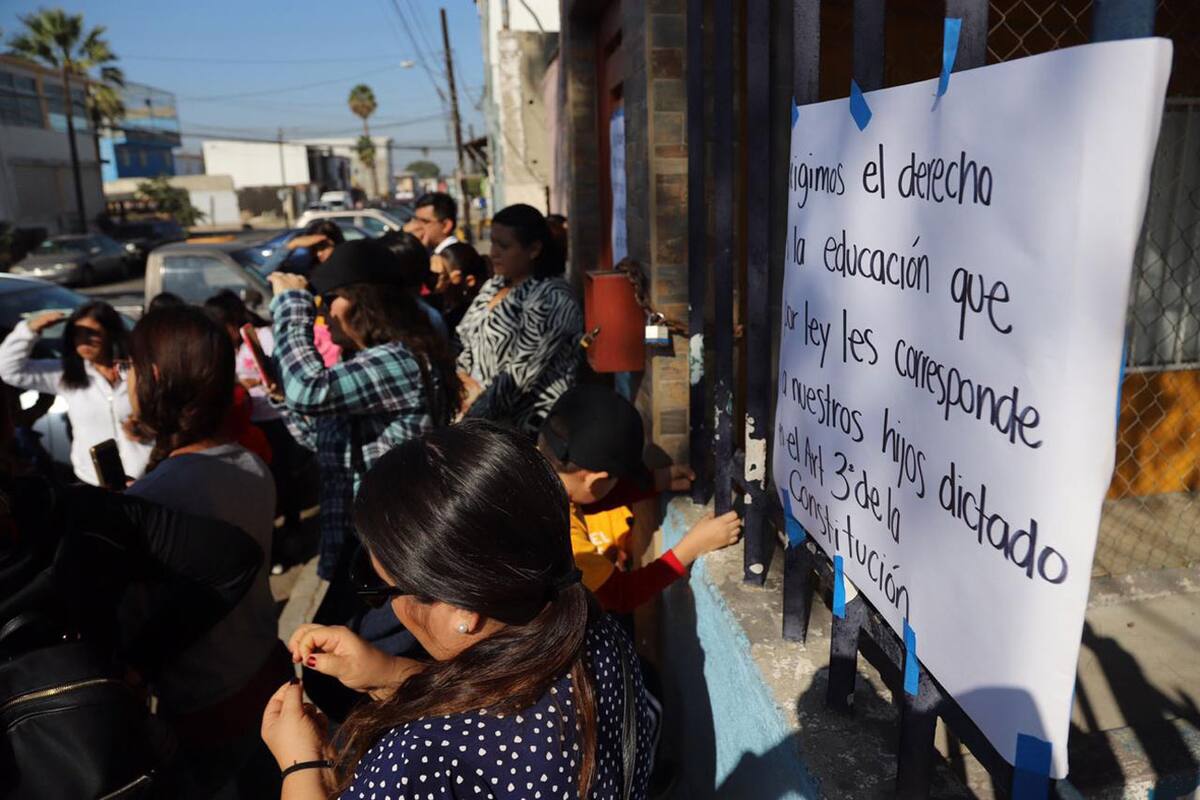 xigimos el derecho
a la educación que
por ley les corresponde
a nuestros hijos dictado
en el Art 3º de la
Constitución